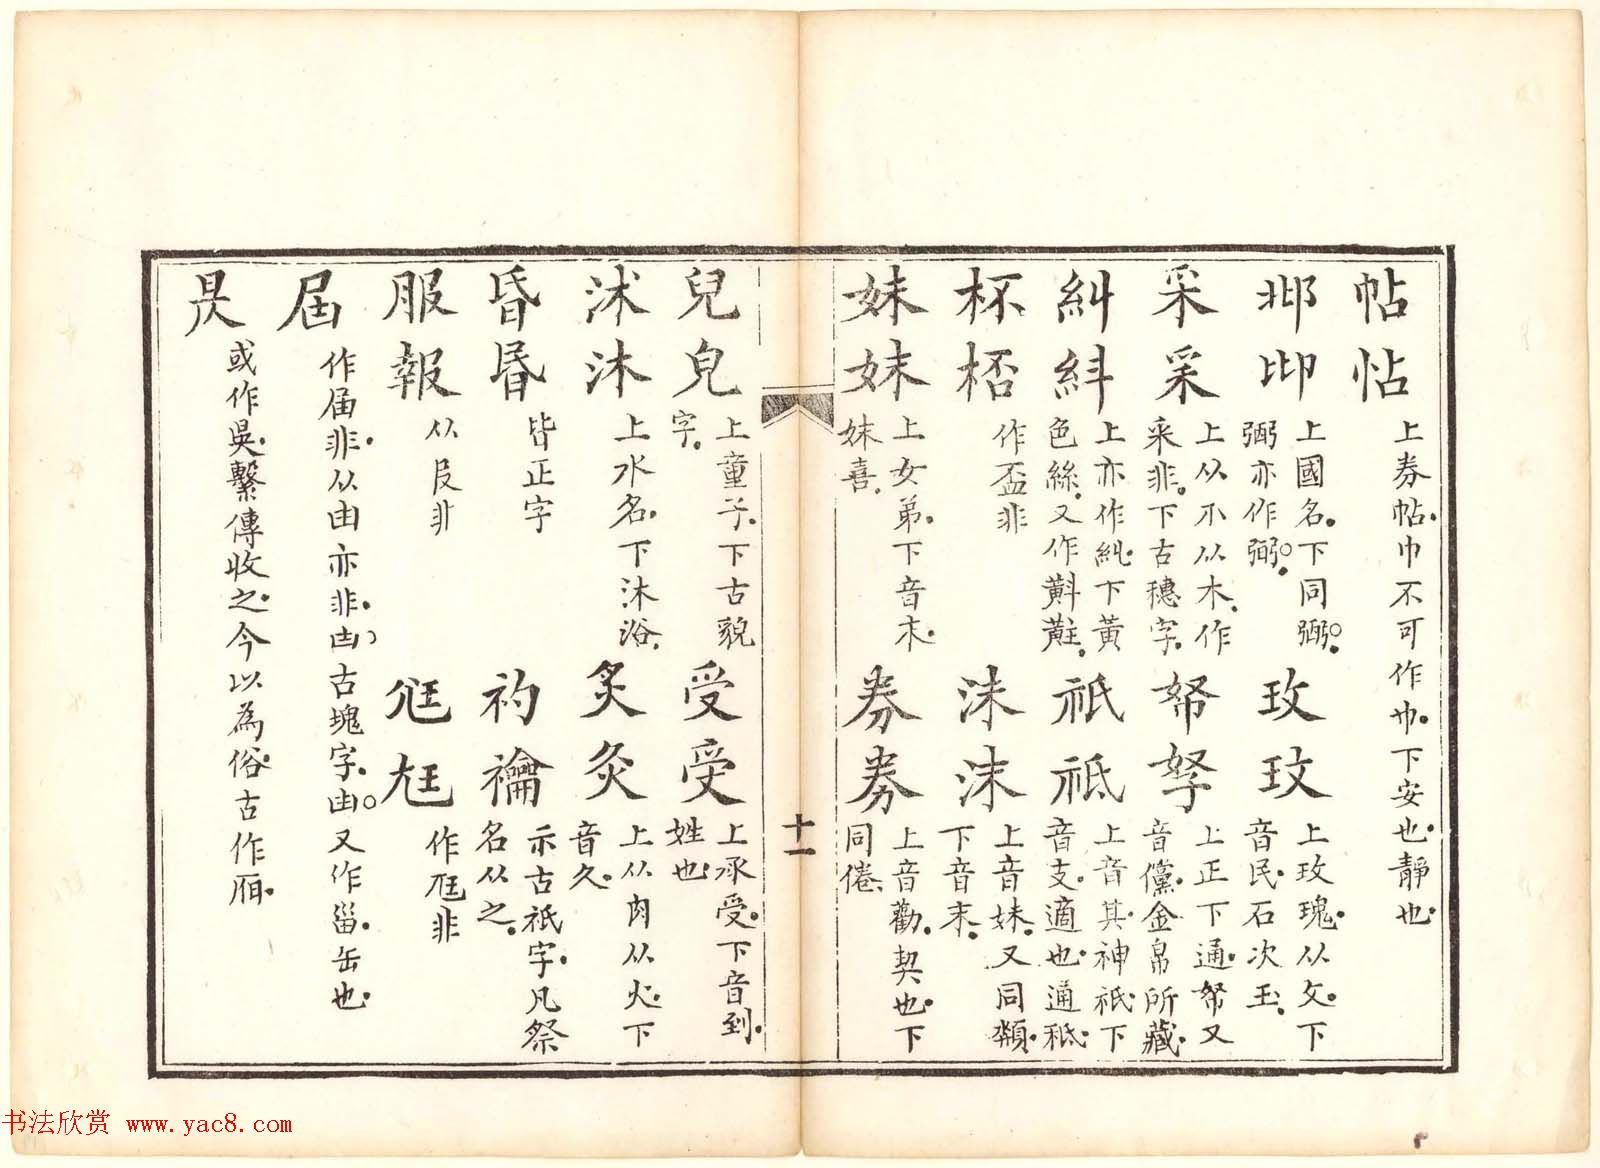 帖帖上券帖巾不可作帅下安也靜也
邶上國名下同
弼亦作弻
玫玟上玫瑰从文下
音民石次玉
采上从爫从木作
采非下古穗字
帑上正下通帑又
音儻金帛所藏
糾糾上亦作糺下黃
色絲又作黈
祇祗上音其神祇下
音支適也通秖
杯桮作盃非
沬沫上音妹又同頮
下音末
妹妺上女弟下音末
妹喜
券劵上音勸契也下
同倦
十一
兒皃上童子下古貌
字
受受上承受下音到
姓也
沭沐上水名下沐浴
炙灸上从肉从火下
音久
昏昬皆正字
礿禴示古祇字凡祭
名从之
服報从𠬝非
尫尪作尩非
屆作届非从由亦非凷古塊字凷又作甾缶也
昃或作吳繫傳收之今以為俗古作厢
书法欣赏 www.yac8.com